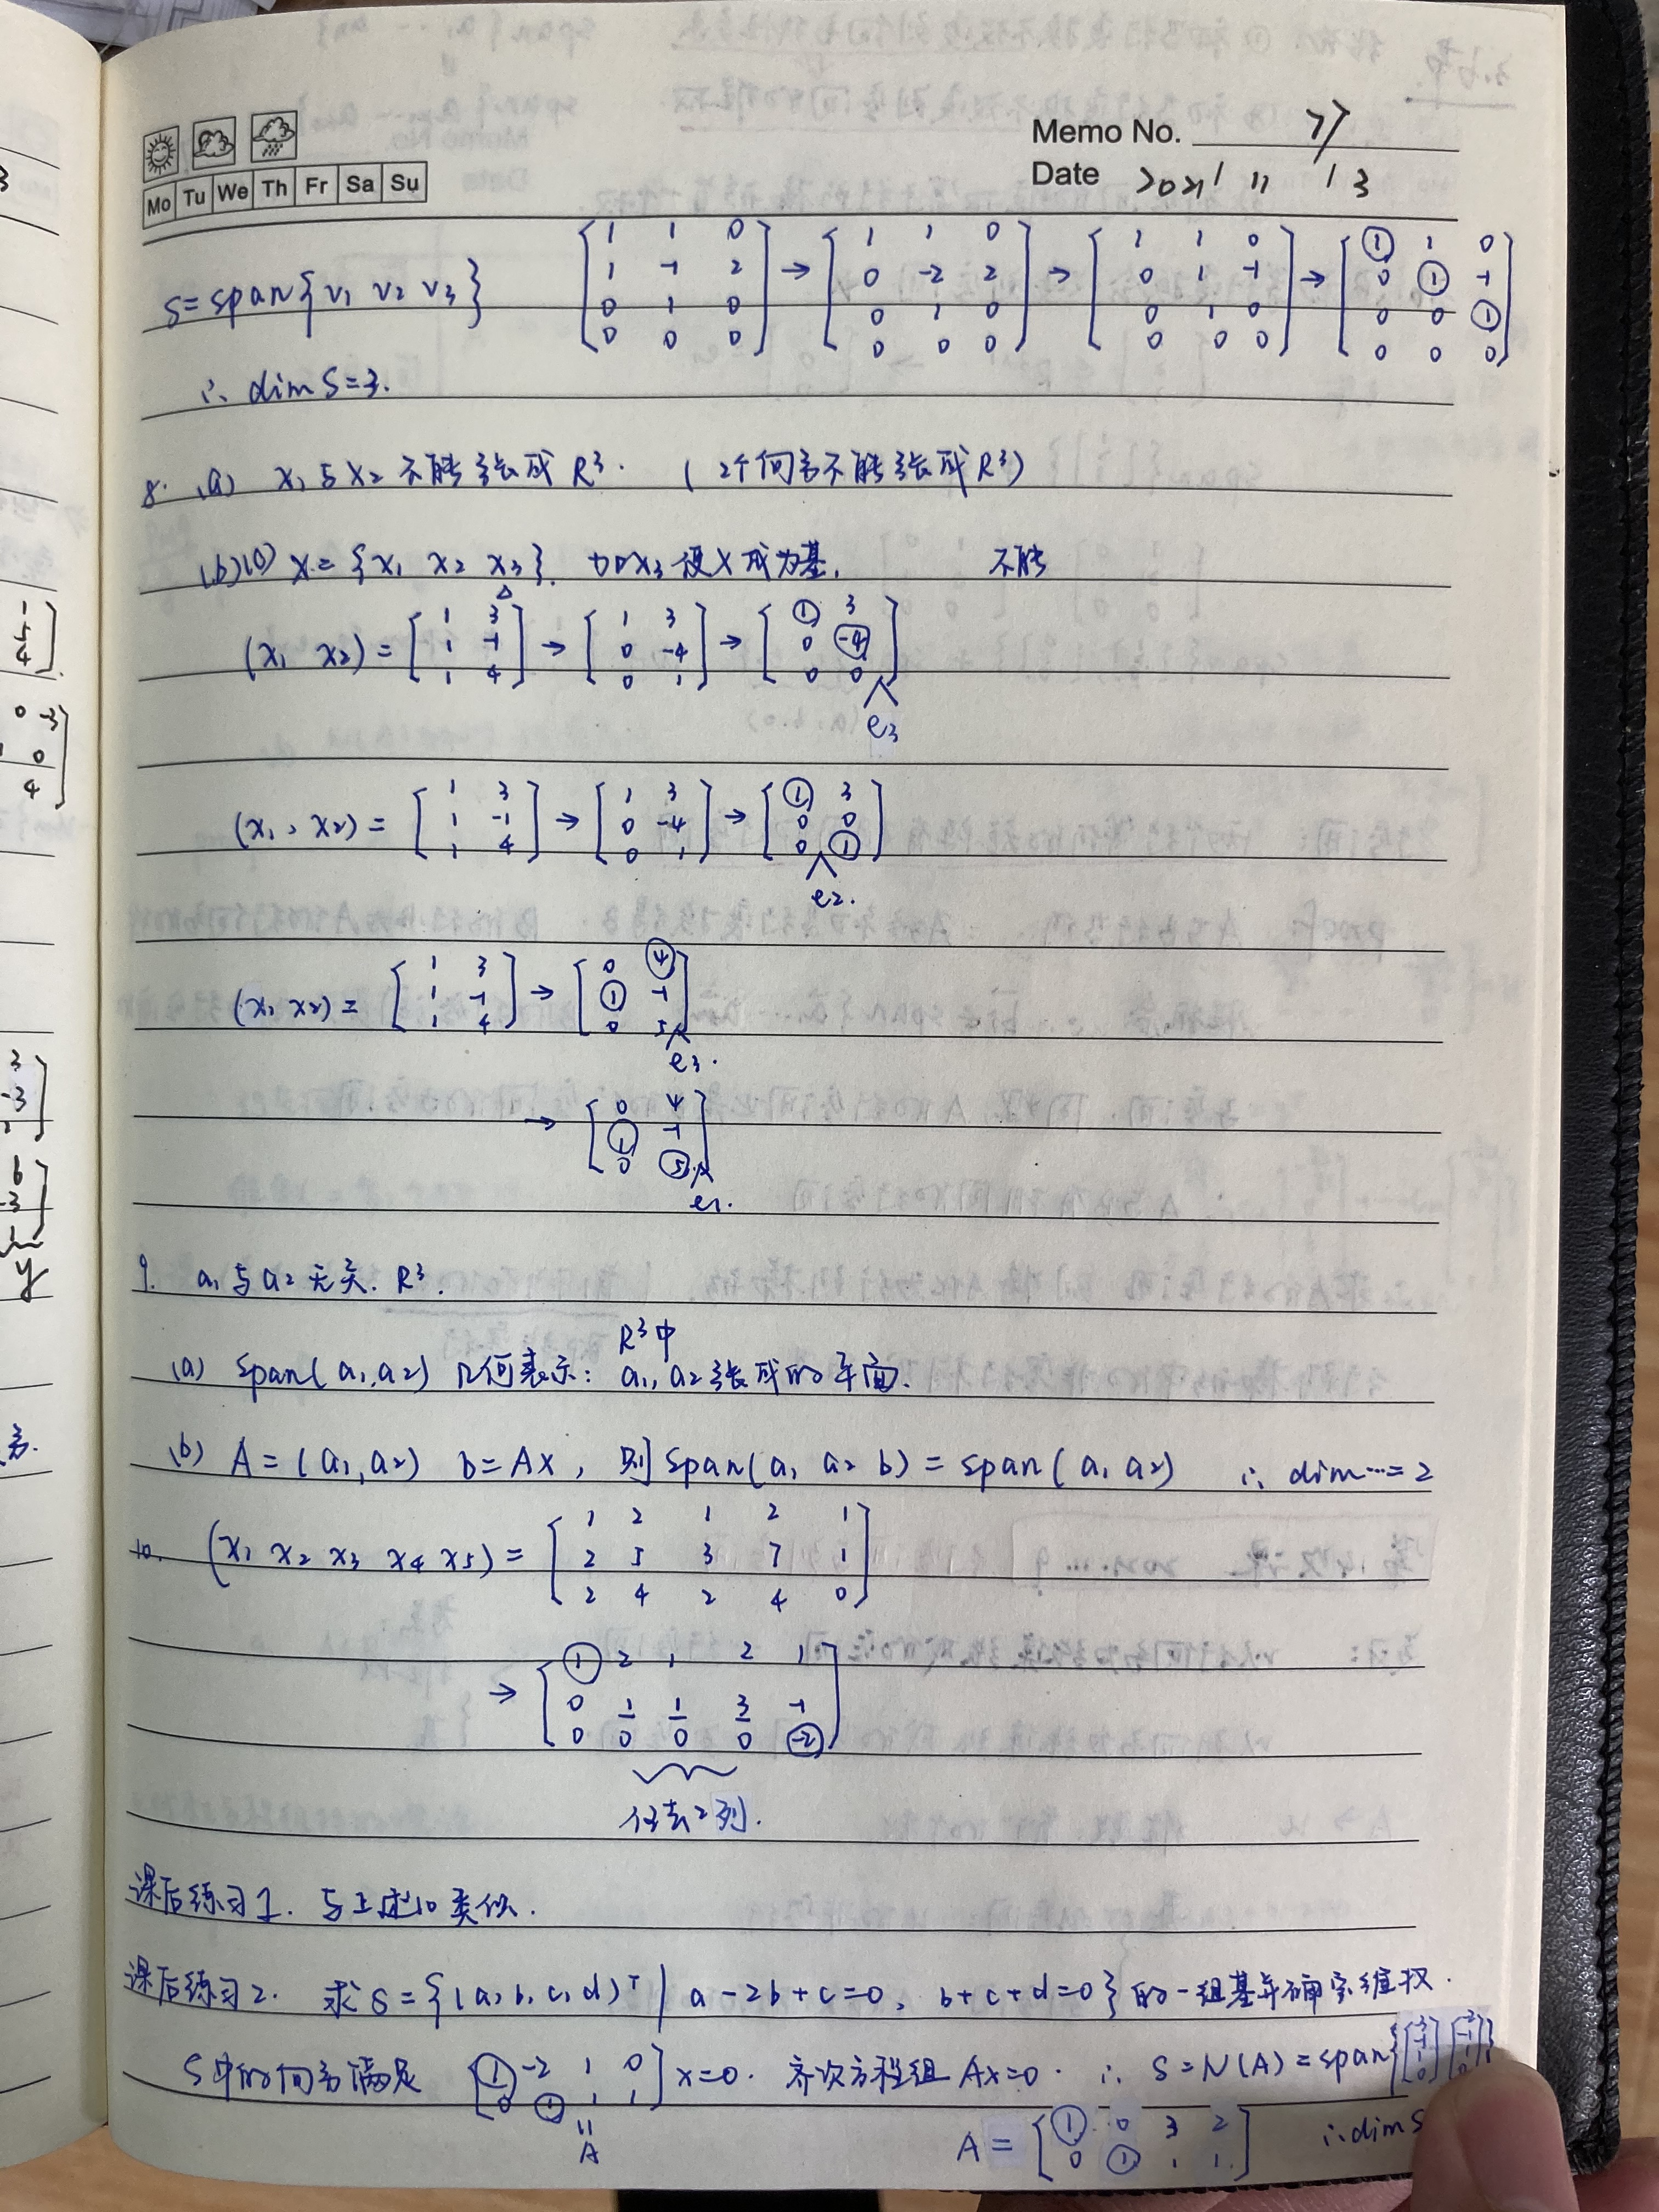 Memo No. 77
Mo Tu We Th Fr Sa Su
Date 2021 11 13
S=span{v1 v2 v3} [1 1 0; 1 -1 2; 0 1 0; 0 0 0] → [1 1 0; 0 -2 2; 0 1 0; 0 0 0] → [1 1 0; 0 1 -1; 0 1 0; 0 0 0] → [① 1 0; 0 ① -1; 0 0 ①; 0 0 0]
∴ dim S=3.
8. (a) x1与x2不能张成R³. (2个向量不能张成R³)
(b)(c) X={x1 x2 x3}. 加x3使X成为基. 不能
(x1 x2) = [1 3; 1 -1; 1 4] → [1 3; 0 -4; 0 1] → [① 3; 0 -4; 0 0]
e3
(x1, x2) = [1 3; 1 -1; 1 4] → [1 3; 0 -4; 0 1] → [① 3; 0 0; 0 ①]
e2.
(x1 x2) = [1 3; 1 -1; 1 4] → [0 4; ① -1; 0 5]
e3.
→ [0 4; ① -1; 0 ⑤]
e1.
9. a1与a2无关. R³.
R³中
(a) span(a1,a2) 几何表示: a1, a2张成的平面.
(b) A=(a1,a2) b=Ax, 则span(a1 a2 b)=span(a1 a2) ∴ dim…=2
10. (x1 x2 x3 x4 x5) = [1 2 1 2 1; 2 5 3 7 1; 2 4 2 4 0]
→ [① 2 1 2 1; 0 1 1 3 -1; 0 0 0 0 -2]
任去2列.
课后练习1. 与上述10类似.
课后练习2. 求S={(a,b,c,d)ᵀ | a-2b+c=0, b+c+d=0}的一组基并确定维数.
S中的向量满足 [① -2 1 0; 0 ① 1 1] x=0. 齐次方程组Ax=0. ∴ S=N(A)=span{
A
A = [① 0 3 2; 0 ① 1 1] ∴dim S